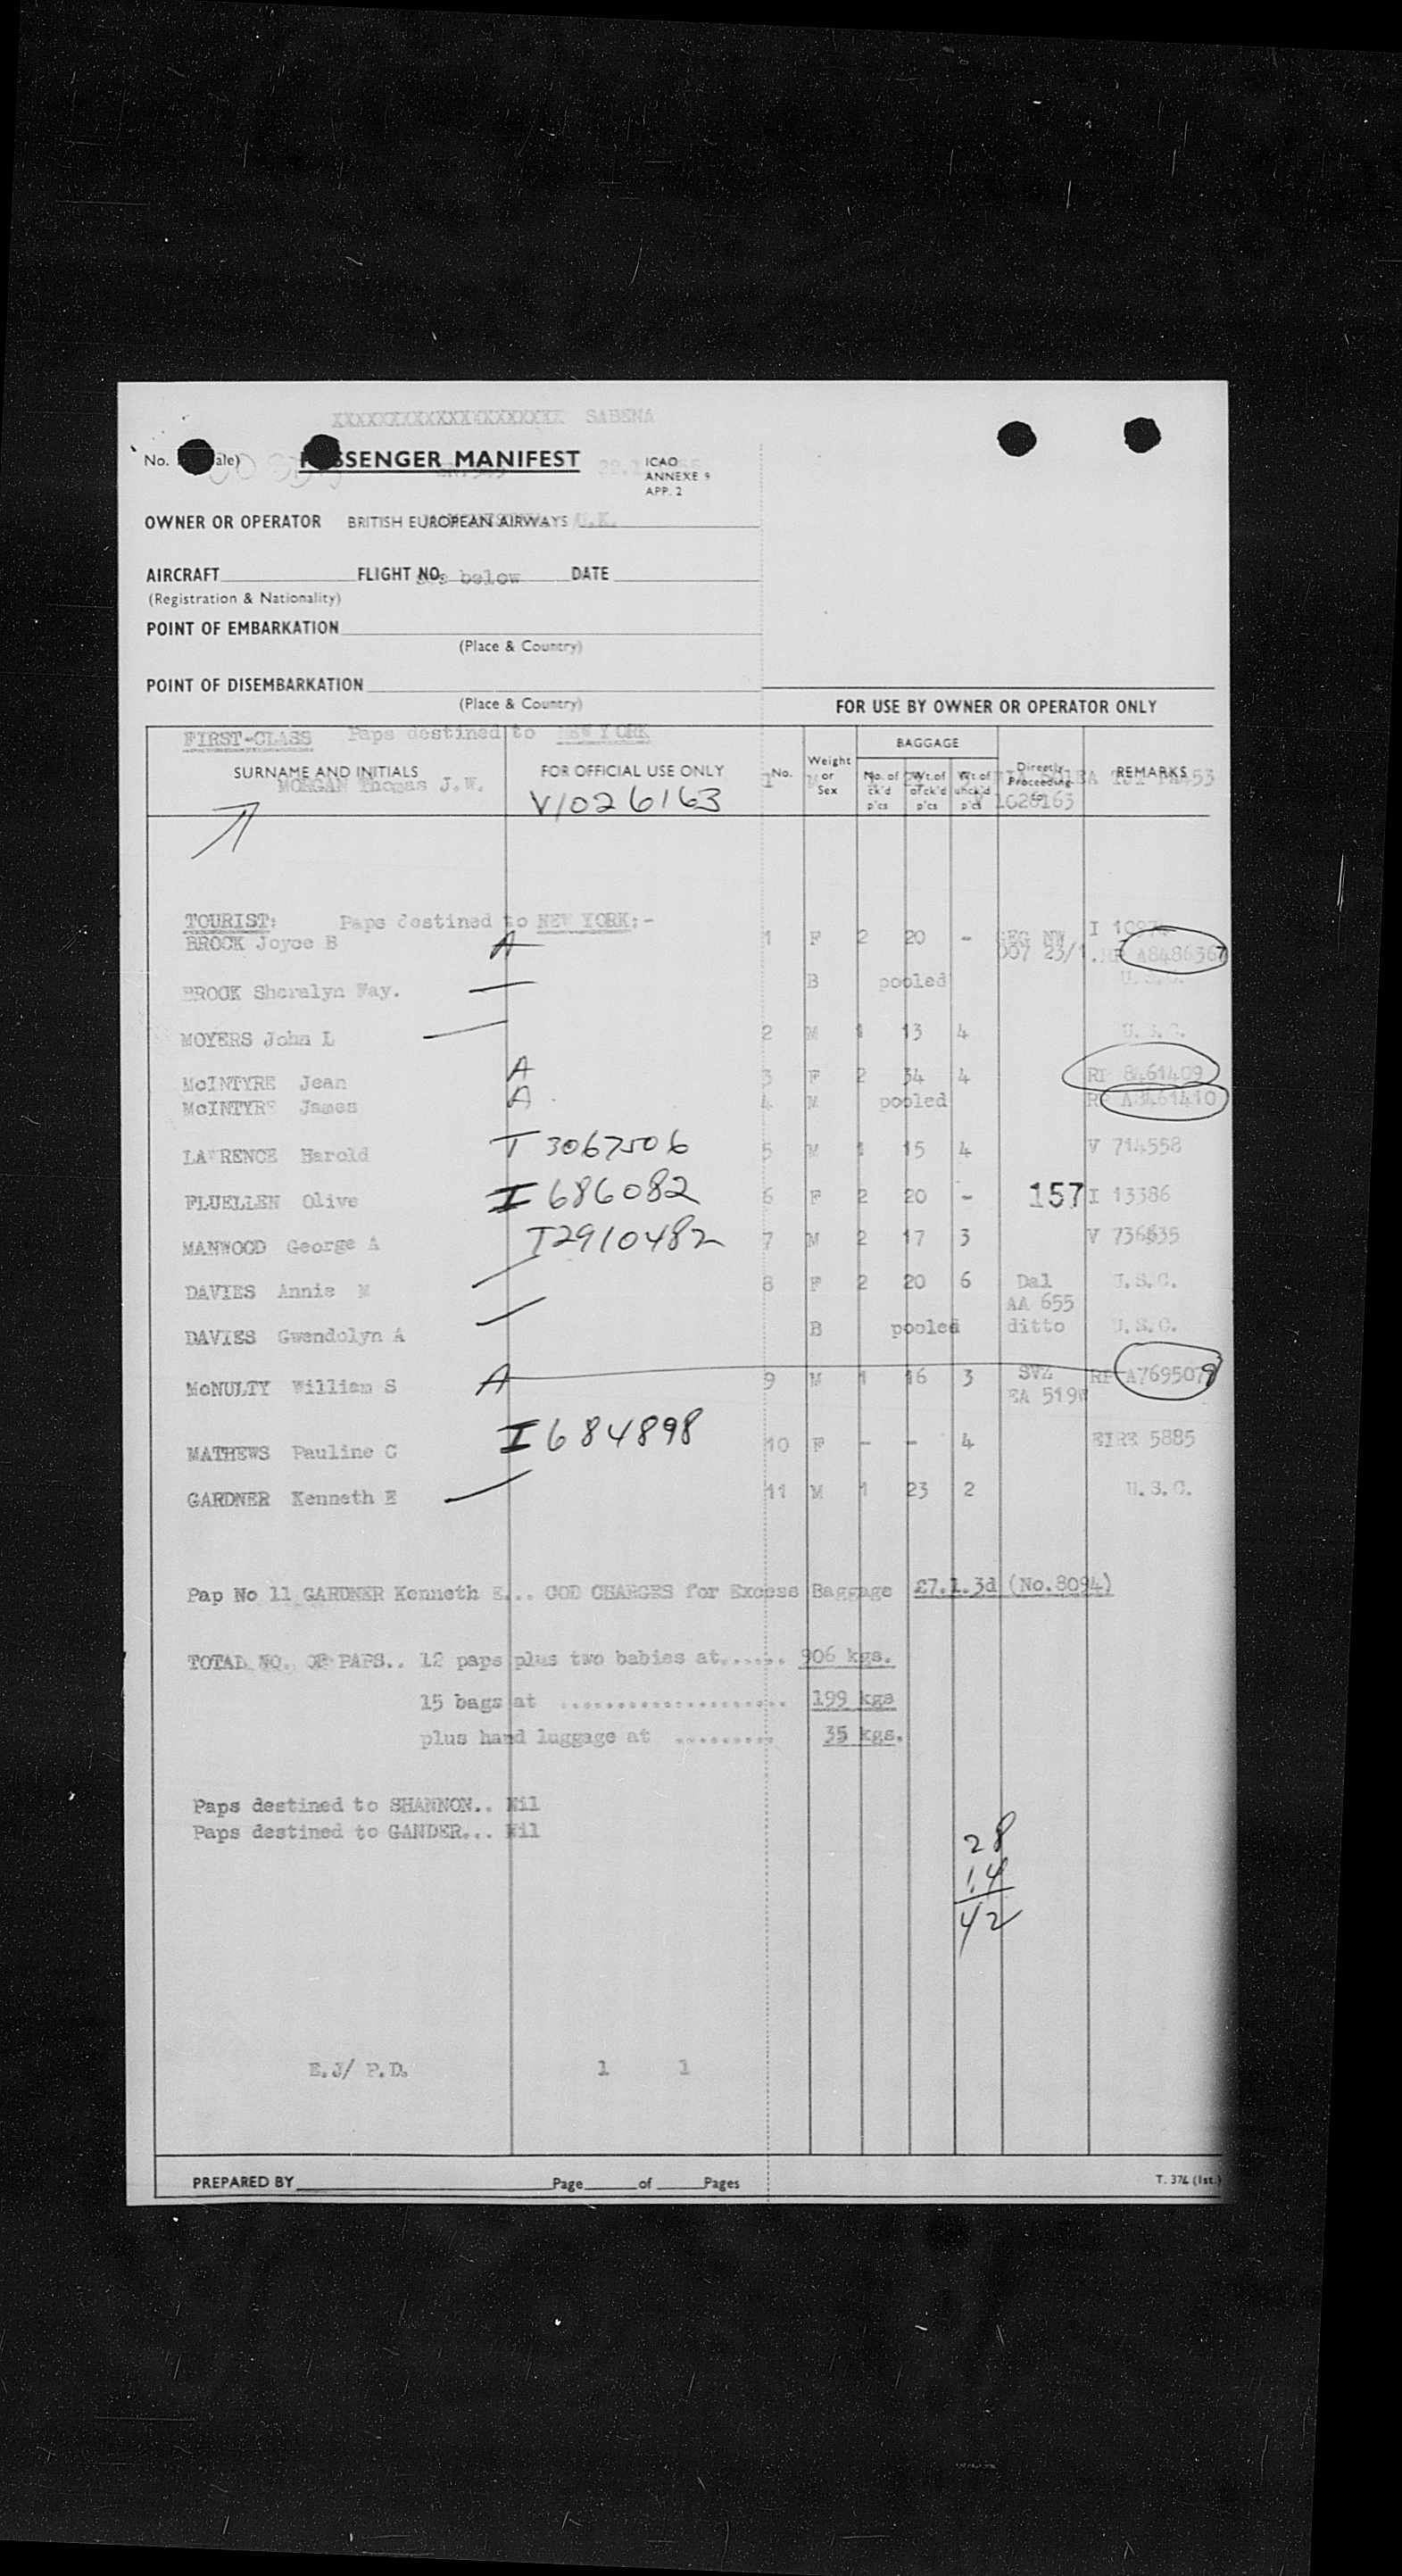 XXXXXXXXXXXXXXXXXXXXX SABENA
No. ale) PASSENGER MANIFEST ICAO
ANNEXE 9
APP. 2
OWNER OR OPERATOR BRITISH EUROPEAN AIRWAYS U.K.
AIRCRAFT FLIGHT NO. See below DATE
(Registration & Nationality)
POINT OF EMBARKATION
(Place & Country)
POINT OF DISEMBARKATION
(Place & Country)
FOR USE BY OWNER OR OPERATOR ONLY
FIRST-CLASS Paps destined to NEW YORK
BAGGAGE
SURNAME AND INITIALS FOR OFFICIAL USE ONLY No. Weight or Sex No. of ck'd p'cs Wt. of ck'd p'cs Wt of unck'd p'cs Directly Proceeding to REMARKS
MORGAN Thomas J.W. V1026163 1 M
1026163
TOURIST: Paps destined to NEW YORK:-
BROCK Joyce B A 1 F 2 20 - 007 23/1. A8486367
BROCK Sheralyn Fay. B pooled U.S.C.
MOYERS John L 2 M 1 13 4 U.S.C.
McINTYRE Jean A 3 F 2 34 4 RP 8461409
McINTYRE James A 4 M pooled RP A8461410
LAWRENCE Harold T 3067506 5 M 1 15 4 V 714558
FLUELLEN Olive I 686082 6 F 2 20 - 157 I 13386
MANWOOD George A T2910482 7 M 2 17 3 V 736635
DAVIES Annie M 8 F 2 20 6 Dal U.S.C.
AA 655
DAVIES Gwendolyn A B pooled ditto U.S.C.
McNULTY William S A 9 M 1 16 3 SVZ RP A7695079
EA 519
MATHEWS Pauline C I 684898 10 F - - 4 EIRE 5885
GARDNER Kenneth E 11 M 1 23 2 U.S.C.
Pap No 11 GARDNER Kenneth E... COD CHARGES for Excess Baggage £7.1.3d (No.8094)
TOTAL NO. OF PAPS.. 12 paps plus two babies at...... 906 kgs.
15 bags at .................... 199 kgs
plus hand luggage at ......... 35 kgs.
Paps destined to SHANNON.. Nil
Paps destined to GANDER... Nil
28
14
42
E.J/ P.D. 1 1
PREPARED BY Page of Pages T. 374 (1st.)